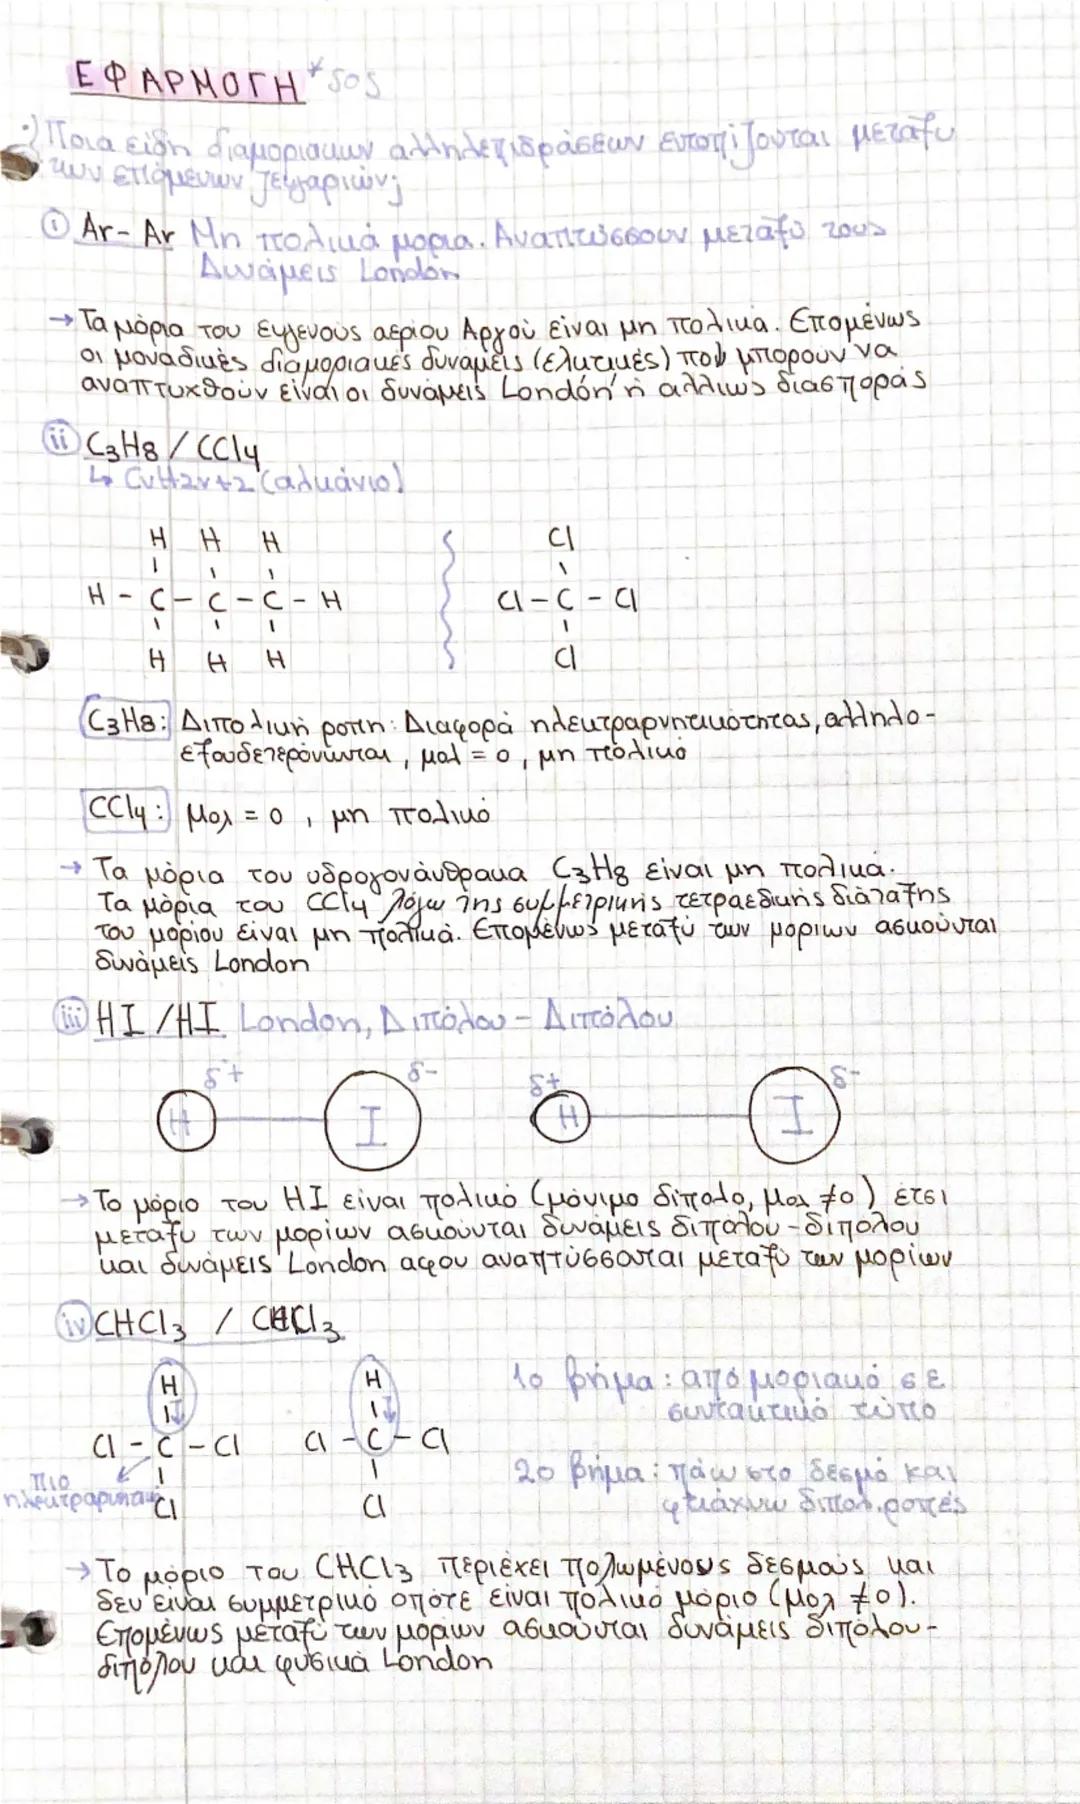 ΕΦΑΡΜΟΓΗ *SOS
·) Ποια είδη διαμοριακών αλληλεπιδράσεων εντοπίζονται μεταξύ
των επόμενων ζευγαριών;
① Ar - Ar Μη πολικά μόρια. Αναπτύσσουν μεταξύ τους
Δυνάμεις London
→ Τα μόρια του ευγενούς αερίου Αργού είναι μη πολικά. Επομένως
οι μοναδικές διαμοριακές δυνάμεις (ελκτικές) που μπορούν να
αναπτυχθούν είναι οι δυνάμεις London ή αλλιώς διασποράς
ii C3H8 / CCl4
↳ CνH2ν+2 (αλκάνιο)
H H H Cl
H - C - C - C - H Cl - C - Cl
H H H Cl
C3H8: Διπολική ροπή: Διαφορά ηλεκτραρνητικότητας, αλληλο-
εξουδετερώνωνται, μολ = 0, μη πολικό
CCl4: μολ = 0, μη πολικό
→ Τα μόρια του υδρογονάνθρακα C3H8 είναι μη πολικά.
Τα μόρια του CCl4 λόγω της συμμετρικής τετραεδικής διάταξης
του μορίου είναι μη πολικά. Επομένως μεταξύ των μορίων ασκούνται
δυνάμεις London
iii HI / HI London, Διπόλου - Διπόλου
δ+ δ- δ+ δ-
H I H I
→ Το μόριο του HI είναι πολικό (μόνιμο δίπολο, μολ ≠0) έτσι
μεταξύ των μορίων ασκούνται δυνάμεις διπόλου - διπόλου
και δυνάμεις London αφού αναπτύσσονται μεταξύ των μορίων
iv CHCl3 / CHCl3
H H 1ο βήμα: από μοριακό σε
συντακτικό τύπο
Cl - C - Cl Cl - C - Cl
2ο βήμα: πάω στο δεσμό και
πιο
ηλεκτραρνητικό Cl Cl φτιάχνω διπολ. ροπές
→ Το μόριο του CHCl3 περιέχει πολωμένους δεσμούς και
δεν είναι συμμετρικό οπότε είναι πολικό μόριο (μολ ≠0).
Επομένως μεταξύ των μορίων ασκούνται δυνάμεις διπόλου-
διπόλου και φυσικά London